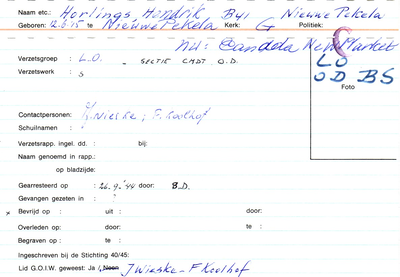 Naam etc.: Horlings, Hendrik Bij Nieuwe Pekela
Geboren: 12.6.15 te Nieuwe Pekela Kerk: G Politiek:
nu: Candela New Market
Verzetsgroep : L.O. - SECTIE CMDT. O.D.
LO
Verzetswerk : S
OD BS
Foto
Contactpersonen: J. Nieske; F. Koolhof
Schuilnaam :
Verzetsrapp. ingel. dd. : bij:
Naam genoemd in rapp.:
op bladzijde:
Gearresteerd op : 26.9.'44 door: B.D.
Gevangen gezeten in : ?
Bevrijd op : uit : door:
Overleden op: door: te :
Begraven op : te :
Ingeschreven bij de Stichting 40/45:
Lid G.O.I.W. geweest: Ja / Neen J Wieske - F Koolhof